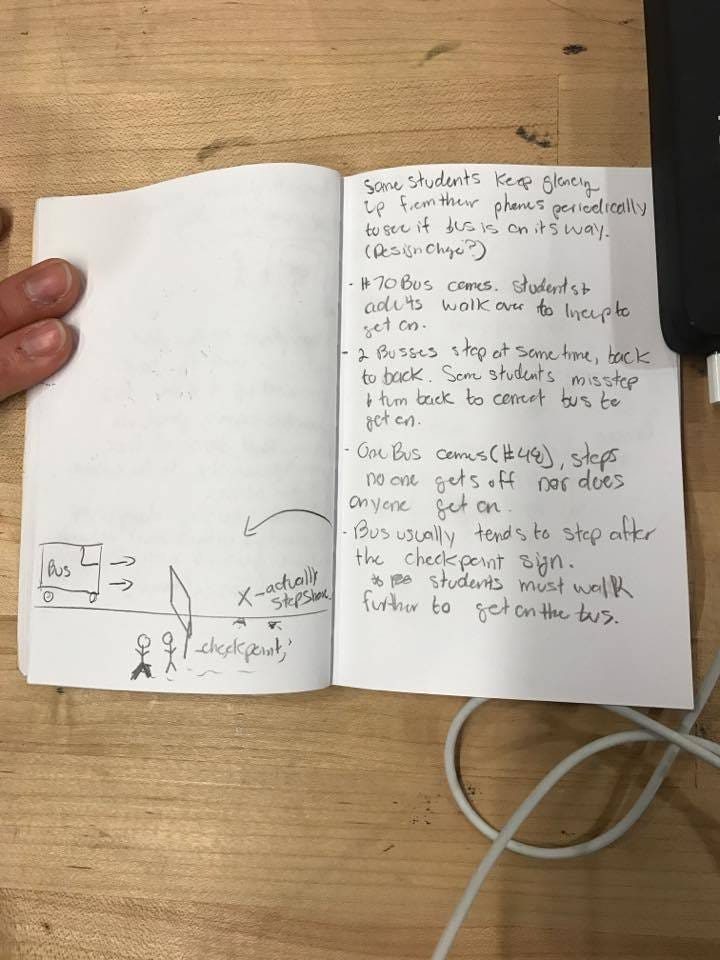 Bus
X-actually
stops here
-checkpoint
Some students keep glancing
up from their phones periodically
to see if bus is on its way.
(Design Chge?)
- #70 Bus comes. Students &
adults walk over to lineup to
get on.
- 2 Busses stop at same time, back
to back. Some students misstep
& turn back to correct bus to
get on.
- One Bus comes (#48), stops
no one gets off nor does
anyone get on.
- Bus usually tends to stop after
the checkpoint sign.
students must walk
further to get on the bus.